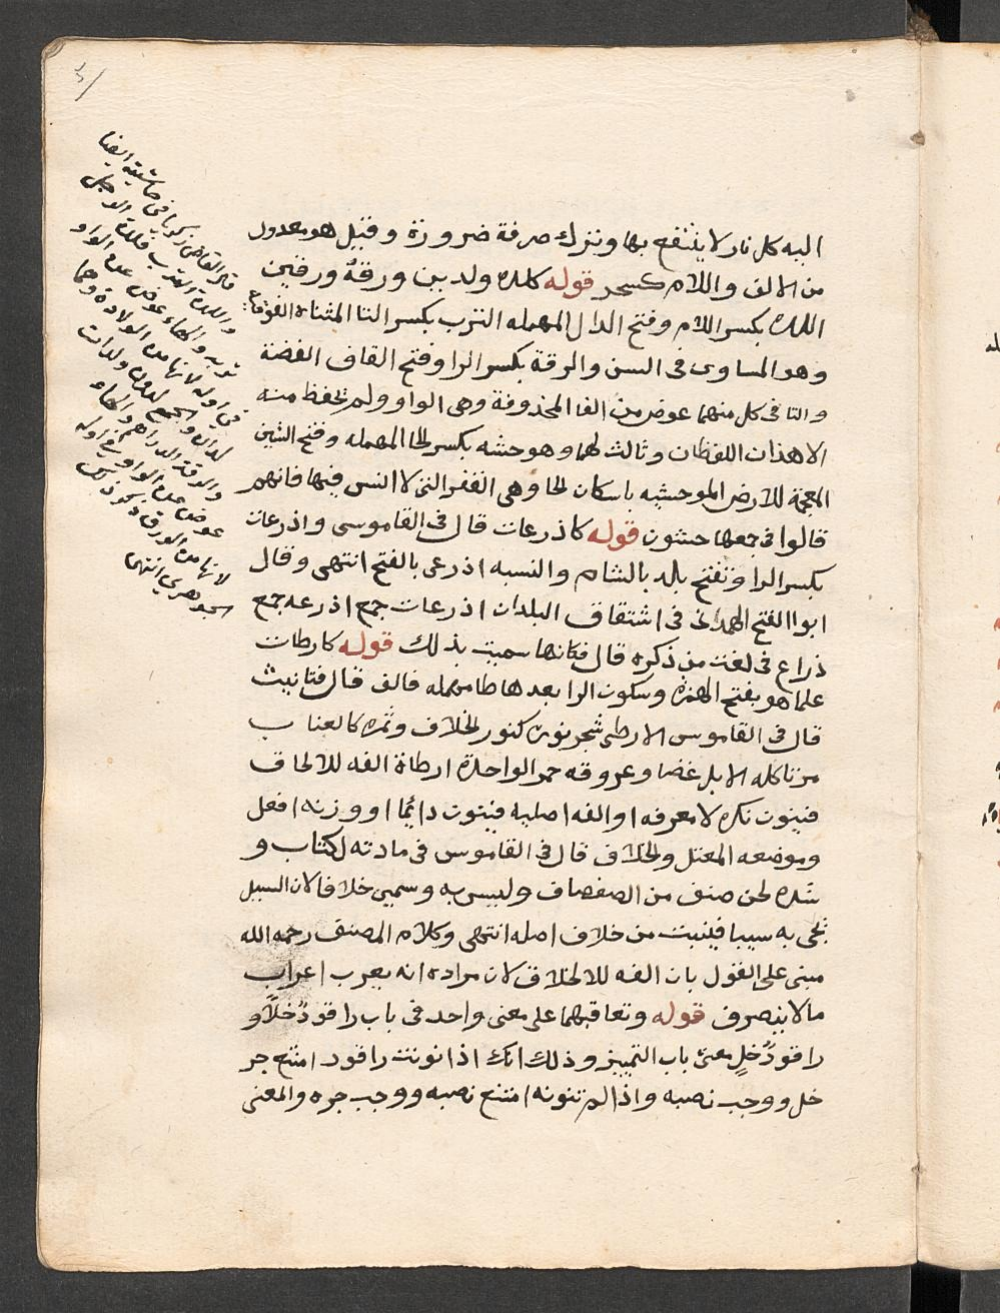 اليه كل نار لا ينتفع بها وترك صرفه ضرورة وقيل هو معدول
من الالف واللام كسحر قوله كلده ولدين ورقة ورقين
اللده بكسر اللام وفتح الدال المهمله الترب بكسر التا المثناه الفوقيه
وهو المساوى فى السن والرقة بكسر الرا وفتح القاف الفضة
والتا فى كل منهما عوض من الفا المحذوفة وهى الواو ولم يحفظ منه
الا هذان اللفظان وثالث لهما وهو حشه بكسر الحا المهمله وفتح الشين
المعجمة للارض الموحشيه باسكان الحا وهى القفر التى لا انس فيها فانهم
قالوا فى جمعها حشون قوله كاذرعات قال فى القاموس واذرعات
بكسر الرا وتفتح بلد بالشام والنسبه اذرعى بالفتح انتهى وقال
ابوا الفتح الهمدانى فى اشتقاق البلدان اذرعات جمع اذرعه جمع
ذراع فى لغت من ذكره قال فكانها سميت بذلك قوله كارطات
علما هو بفتح الهمزه وسكون الرا بعدها طا مهمله فالف قال فتانيث
قال فى القاموس الارطى شجر نوره كنور الخلاف وثمره كالعناب
مر تاكله الابل غضا وعروقه حمر الواحدة ارطاة الفه للالحاق
فينون نكره لا معرفه او الفه اصلية فينون دائما او وزنه افعل
وموضعه المعتل والخلاف قال فى القاموس فى مادته ككتاب و
شده لحن صنف من الصفصاف وليس به وسمى خلافا لان السيل
يجى به سيبا فينبت من خلاف اصله انتهى وكلام المصنف رحمه الله
مبنى على القول بان الفه للالحاق لان مراده انه يعرب اعراب
مالا ينصرف قوله وتعاقبهما على معنى واحد فى باب راقودٌ خلًا و
راقودُ خلٍ معنى باب التمييز وذلك انك اذا نونت راقود امتنع جر
خل ووجب نصبه واذا لم تنونه امتنع نصبه ووجب جره والمعنى
قال القاضى زكريا فى حاشيته ايضا
واللدة الترب فلدة الرجل
تربه والهاء عوض عن الواو
فى اوله لانها من الولادة وهما
لدان والجمع لدون ولدات
والرقة الدراهم والهاء
عوض عن الواو فى اوله
لانها من الورق ذكر ذلك
الجوهرى انتهى